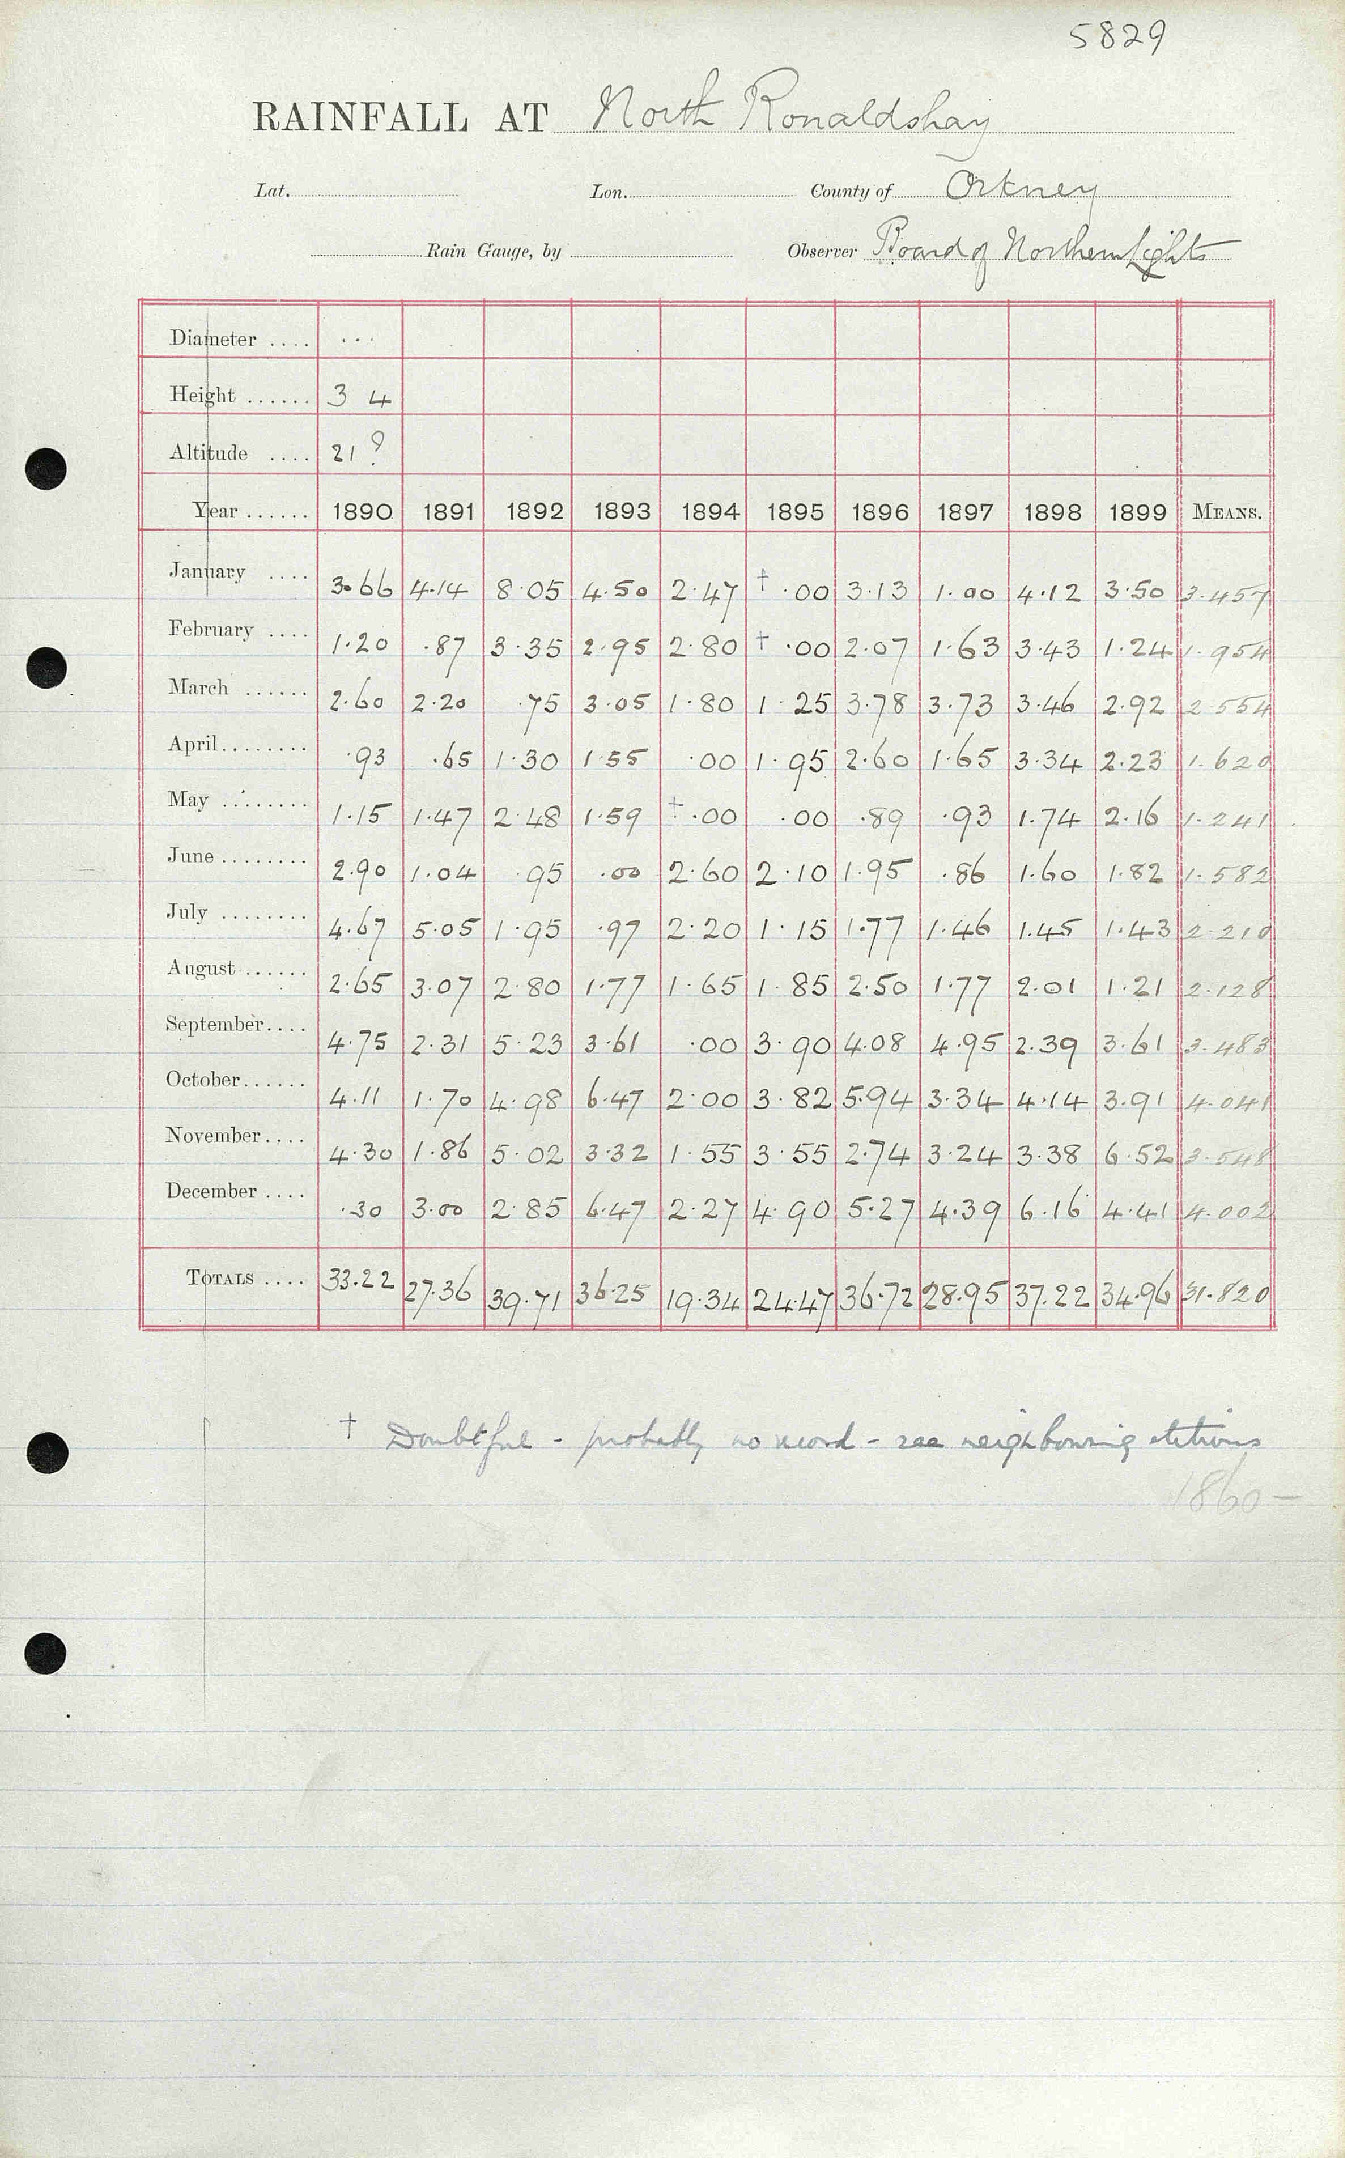 5829
RAINFALL AT North Ronaldshay
Lat. Lon. County of Orkney
Rain Gauge, by Observer Board of Northern Lights
Diameter .... ...
Height ...... 3 4
Altitude .... 21 ?
Year ...... 1890 1891 1892 1893 1894 1895 1896 1897 1898 1899 MEANS.
January .... 3.66 4.14 8.05 4.50 2.47 † .00 3.13 1.00 4.12 3.50 3.457
February .... 1.20 .87 3.35 2.95 2.80 † .00 2.07 1.63 3.43 1.24 1.954
March ...... 2.60 2.20 .75 3.05 1.80 1.25 3.78 3.73 3.46 2.92 2.554
April ........ .93 .65 1.30 1.55 .00 1.95 2.60 1.65 3.34 2.23 1.620
May ........ 1.15 1.47 2.48 1.59 † .00 .00 .89 .93 1.74 2.16 1.241
June ........ 2.90 1.04 .95 .00 2.60 2.10 1.95 .86 1.60 1.82 1.582
July ........ 4.67 5.05 1.95 .97 2.20 1.15 1.77 1.46 1.45 1.43 2.210
August ...... 2.65 3.07 2.80 1.77 1.65 1.85 2.50 1.77 2.01 1.21 2.128
September .... 4.75 2.31 5.23 3.61 .00 3.90 4.08 4.95 2.39 3.61 3.483
October ...... 4.11 1.70 4.98 6.47 2.00 3.82 5.94 3.34 4.14 3.91 4.041
November .... 4.30 1.86 5.02 3.32 1.55 3.55 2.74 3.24 3.38 6.52 3.548
December .... .30 3.00 2.85 6.47 2.27 4.90 5.27 4.39 6.16 4.41 4.002
TOTALS .... 33.22 27.36 39.71 36.25 19.34 24.47 36.72 28.95 37.22 34.96 31.820
† Doubtful - probably no record - see neighbouring stations
1860 —